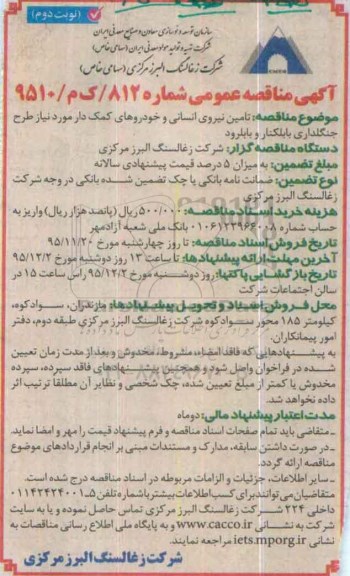 (نوبت دوم)
سازمان توسعه و نوسازی معادن و صنایع معدنی ایران
شرکت تهیه و تولید مواد معدنی ایران (سهامی خاص)
شرکت زغالسنگ البرز مرکزی (سهامی خاص)
آگهی مناقصه عمومی شماره ۸۱۲/ک م/۹۵۱۰
موضوع مناقصه: تامین نیروی انسانی و خودروهای کمک دار مورد نیاز طرح
جنگلداری بابلکنار و بابلرود
دستگاه مناقصه گزار: شرکت زغالسنگ البرز مرکزی
مبلغ تضمین: به میزان ۵ درصد قیمت پیشنهادی سالانه
نوع تضمین: ضمانت نامه بانکی یا چک تضمین شده بانکی در وجه شرکت
زغالسنگ البرز مرکزی
هزینه خرید اسناد مناقصه: ۵۰۰/۰۰۰ ریال (پانصد هزار ریال) واریز به
حساب شماره ۰۱۰۶۱۲۳۹۶۶۰۰۸ بانک ملی شعبه آزادمهر
تاریخ فروش اسناد مناقصه: تا روز چهارشنبه مورخ ۹۵/۱۱/۲۰
آخرین مهلت ارائه پیشنهادها: تا ساعت ۱۳ روز دوشنبه مورخ ۹۵/۱۲/۲
تاریخ بازگشایی پاکتها: روز دوشنبه مورخ ۹۵/۱۲/۲ راس ساعت ۱۵ در
سالن اجتماعات شرکت
محل فروش اسناد و تحویل پیشنهادها: مازندران، سوادکوه،
کیلومتر ۱۸۵ محور سوادکوه شرکت زغالسنگ البرز مرکزی طبقه دوم، دفتر
امور پیمانکاران.
به پیشنهادهایی که فاقد امضاء، مشروط، مخدوش و بعد از مدت زمان تعیین
شده در فراخوان واصل شود و همچنین پیشنهادهای فاقد سپرده، سپرده
مخدوش یا کمتر از مبلغ تعیین شده، چک شخصی و نظایر آن مطلقا ترتیب اثر
داده نخواهد شد.
مدت اعتبار پیشنهاد مالی: دوماه
ـ متقاضی باید تمام صفحات اسناد مناقصه و فرم پیشنهاد قیمت را مهر و امضا نماید.
ـ در صورت داشتن سابقه، مدارک و مستندات مبنی بر انجام قراردادهای موضوع
مناقصه ارائه گردد.
ـ سایر اطلاعات، جزئیات و الزامات مربوطه در اسناد مناقصه درج شده است.
متقاضیان می‌توانند برای کسب اطلاعات بیشتر با شماره تلفن ۵ـ۰۱۱۴۲۴۲۴۰۰۱
داخلی ۲۲۴ شرکت زغالسنگ البرز مرکزی تماس حاصل نموده و یا به سایت
شرکت به نشانی www.cacco.ir و به پایگاه ملی اطلاع رسانی مناقصات به
نشانی iets.mporg.ir مراجعه نمایند.
شرکت زغالسنگ البرز مرکزی